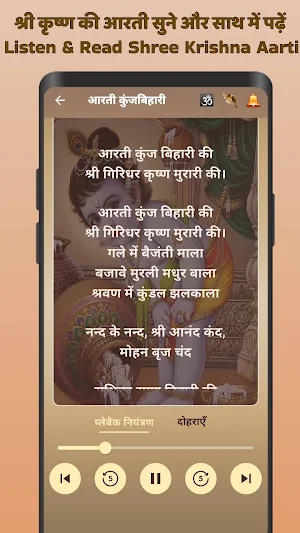 श्री कृष्ण की आरती सुने और साथ में पढ़ें
Listen & Read Shree Krishna Aarti
आरती कुंजबिहारी
ॐ
आरती कुंज बिहारी की
श्री गिरिधर कृष्ण मुरारी की।
आरती कुंज बिहारी की
श्री गिरिधर कृष्ण मुरारी की।
गले में बैजंती माला
बजावे मुरली मधुर बाला
श्रवण में कुंडल झलकाला
नन्द के नन्द, श्री आनंद कंद,
मोहन बृज चंद
प्लेबैक नियंत्रण दोहराएँ
5 5